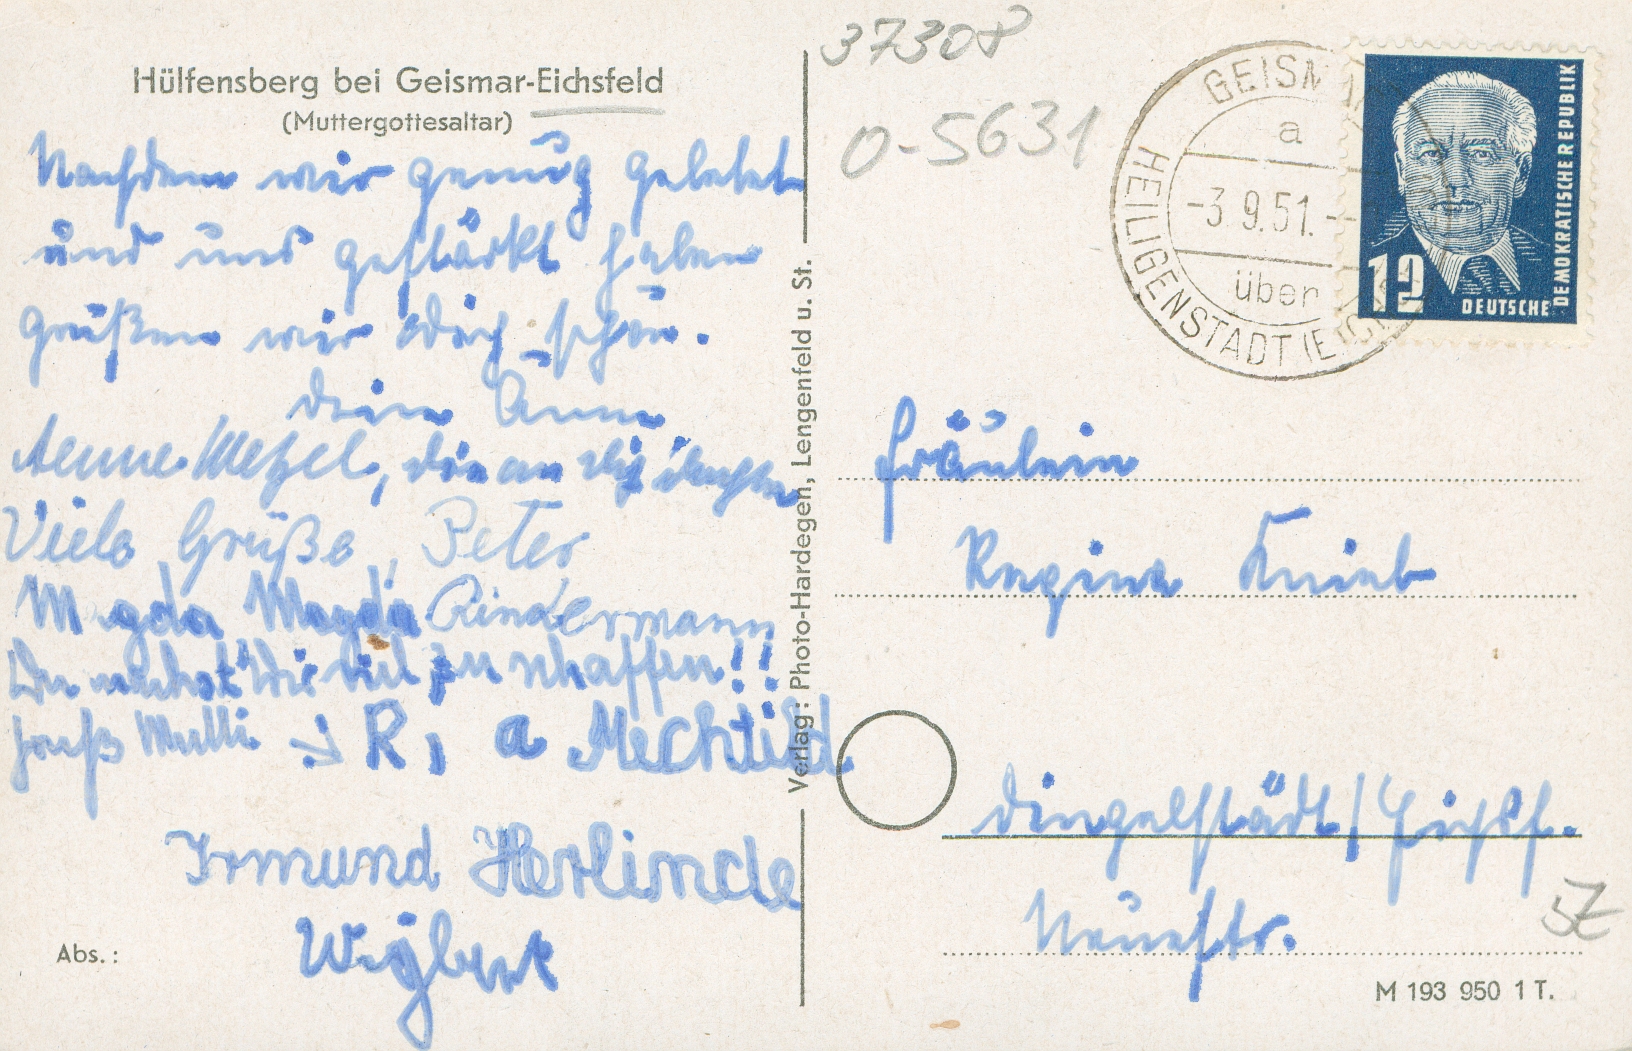 Hülfensberg bei Geismar-Eichsfeld
(Muttergottesaltar)
Nachdem wir genug gebetet
und uns gestärkt haben
grüßen wir Dich schön.
Dein Änne
Aenne Metzel, die an Dich dachte
Viele Grüße, Peter
Magda Magda Rindermann
viel zu schaffen!!
R, a Mechtild
Irmund Herlinde
Wigbert
Abs.:
Verlag: Photo-Hardegen, Lengenfeld u. St.
37308
O-5631
GEISMAR
a
-3.9.51.-
über
HEILIGENSTADT (EICHSF
12
DEUTSCHE DEMOKRATISCHE REPUBLIK
Fräulein
Regina Knieb
Dingelstädt/Eichsf.
Neuestr.
M 193 950 1 T.